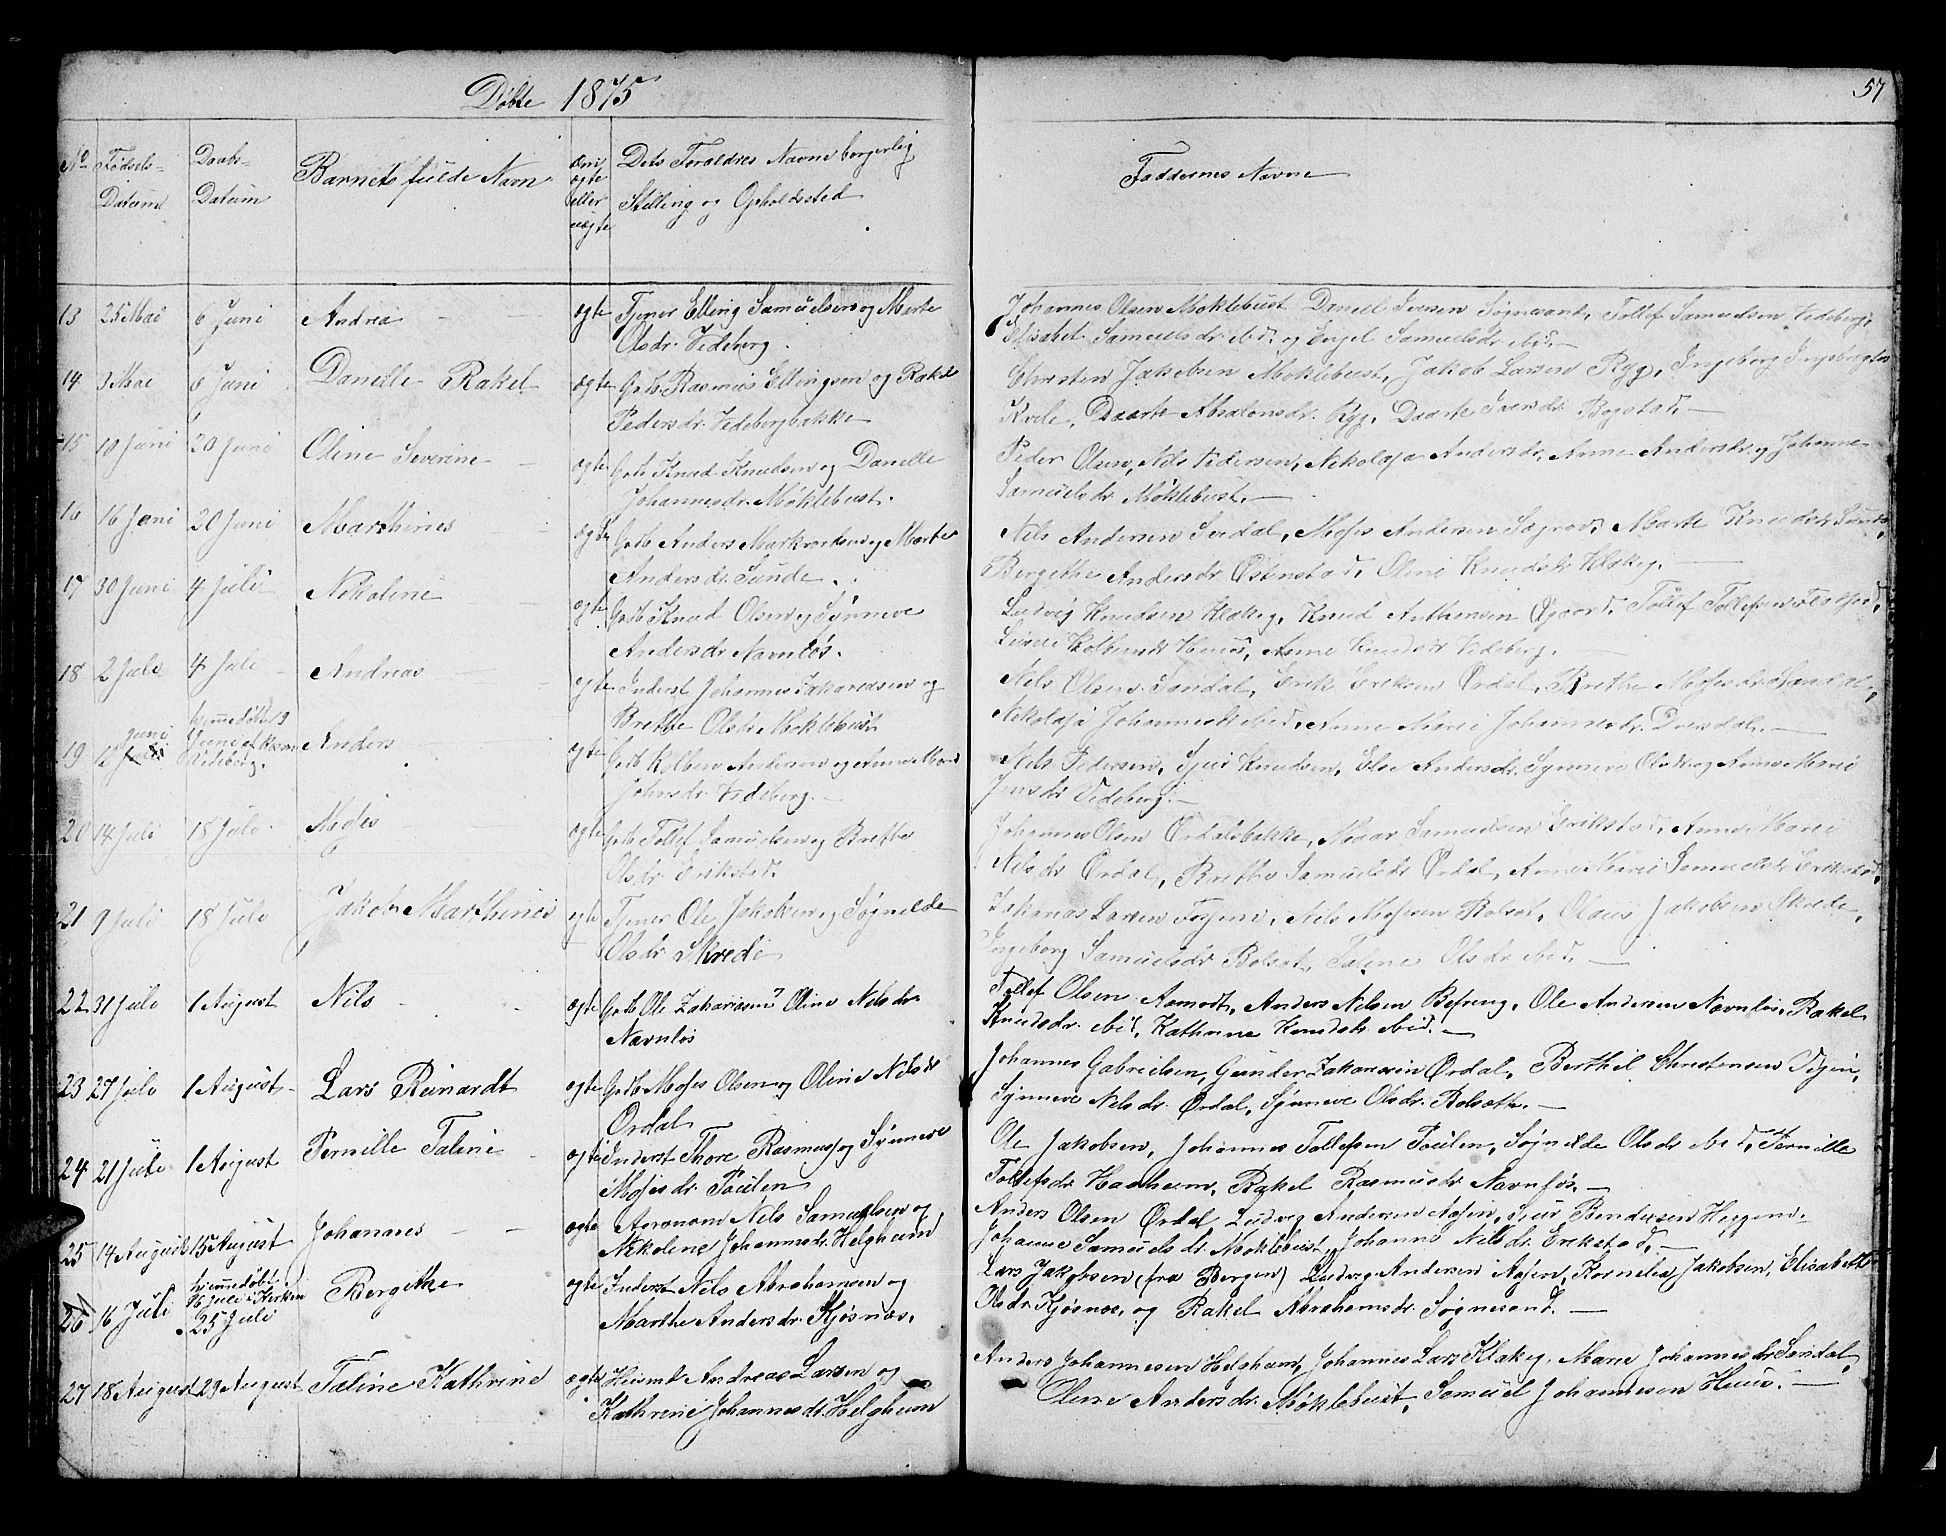 Døbte 1875
57
No Fødsels-Datum Daabs-Datum Barnets fulde Navn om ægte eller uægte Dets Forældres Navne borgerlig Stilling og Opholdssted
Faddernes Navne
13 25 Mai 6 Juni Andrea ægte Tjener Elling Samuelsen og Marte
Olsdr. Vedeberg.
Johannes Olsen Moklebust Daniel Iversen Søgnesand, Tollef Samuelsen Vedeberg,
Elisabet Samuelsdr. ibid. og Engel Samuelsdr. ibid.
14 3 Mai 6 Juni Danielle Rakel ægte Grdb Rasmus Ellingsen og Rakel
Pedersdr. Vedebergbakke
Christen Jakobsen Moklebust, Jakob Larsen Ryg, Ingeborg
Kvile, Daarte Absalonsdr. Ryg, Daarte Iversdr. Bogstad.
15 10 Juni 20 Juni Oline Severine ægte Grdb Knud Knudsen og Danielle
Johannesdr. Møklebust.
Peder Olsen, Nils Pedersen, Nikolaja Andersdr, Anne Andersdr. og Johanne
Samuelsdr Møklebust.
16 16 Juni 20 Juni Marthines ægte Grdb Anders Markvordsen og Marte
Andersdr. Sunde.
Nils Andersen Sandal, Moses Andersen Søgrod, Marte Knudsdr. Sunde,
Bergethe Andersdr. Ostenstad, Oline Knudsdr. Klakeg.
17 30 Juni 4 Juli Nikoline ægte Grdb Knud Olsen og Synneve
Andersdr. Navnløs.
Ludvig Knudsen Klakeg, Knud Anthonsen Øgaard, Tollef Tollefsen
Kolbensdr. Huus, Anne Knudsdr. Vedeberg.
18 2 Juli 4 Juli Andreas ægte Inderst Johannes Zakariasen og
Brethe Olsdr. Moklebust
Nils Olsen Sandal, Erik Eriksen Ørdal, Brethe Mosesdr. Sandal,
Nikolaja Johannesdr. ibid, Anne Marie Johannesdr. Dvergsdal.
19 12 Juni hjemmedøbt 13 Juni af Vedeberg. Anders ægte Grdb Kolben Andersen og Anne Marie
Johnsdr. Vedeberg.
Nils Pedersen, Sjur Knudsen, Else Andersdr. Synneve Olsdr. og Anne Marie
Jensdr Vedeberg.
20 14 Juli 18 Juli ægte Grdb Tollef Samuelsen og Brethe
Olsdr. Erikstad.
Johannes Olsen Ørdalsbakke, Samuelsen Erikstad, Anne Marie
Nilsdr. Ørdal, Brethe Samuelsdr Ørdal, Anne Marie Samuelsdr Erikstad.
21 9 Juli 18 Juli Jakob Marthinus ægte Tjener Ole Jakobsen og Søgnilde
Olsdr. Skrede
Larsen Nils Mosesen Bolset, Olaus Jakobsen Skrede,
Ingeborg Samuelsdr Bolset, Taline Olsdr. ibid.
22 31 Juli 1 August Nils ægte Grdb Ole Zakariasen Oline Nilsdr.
Navnløs
Tollef Olsen Aamodt, Anders Nilsen Befring, Ole Andersen Navnløs, Rakel
Knudsdr. ibid, Kathrine Knudsdr. ibid.
23 27 Juli 1 August Lars Reinardt ægte Grdb Moses Olsen og Oline Nilsdr
Ørdal
Johannes Gabrielsen, Gunder Zakariasen Ørdal, Berthil Christensen
Synneve Nilsdr. Ørdal, Synneve Olsdr. Bolsæth.
24 21 Juli 1 August Pernille Taline ægte Inderst Thore Rasmus og Synneve
Mosesdr. Paulen
Ole Jakobsen, Johannes Tollefsen Paulen, Søgnilde Olsdr. ibid. Pernille
Tollefsdr. Hanheim, Rakel Rasmusdr. Navnløs.
25 14 August 15 August Johannes ægte Agronom Nils Samuelsen og
Nikoline Johannesdr. Helgheim
Anders Olsen Ørdal Ludvig Andersen Aasen, Sjur Bendiksen Heggeni.
Johanne Samuelsdr. Moklebust, Johanne Nilsdr. Erikstad.
26 16 Juli hjemmedøbt 16 Juli i Kirken 25 Juli Bergethe ægte Inderst Nils Abrahamsen og
Marthe Andersdr. Kjøsnes.
Lars Jakobsen (fra Bergen) Ludvig Andersen Aasen, Kornelia Jakobsen, Elisabeth
Olsdr. Kjøsnes, og Rakel Abrahamsdr. Søgnesand.
27 18 August 29 August Taline Kathrine ægte Huusmd Andreas Larsen og
Kathrine Johannesdr. Helgheim
Anders Johannesen Helgheim, Johannes Lars. Klakeg. Marie Johannesdr Sandal,
Oline Andersdr. Møklebust, Samuel Johannesen Huus.